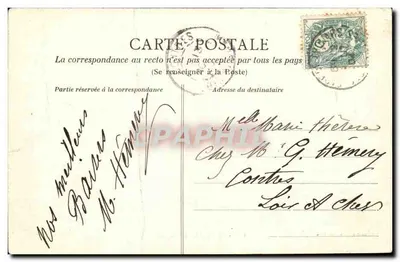 CARTE POSTALE
La correspondance au recto n'est pas acceptée par tous les pays
(Se renseigner à la Poste)
Partie réservée à la correspondance
Adresse du destinataire
nos meilleurs
Baisers
M. Hémery
Melle Marie Thérèse
Chez M. G. Hémery
Contres
Loir & Cher